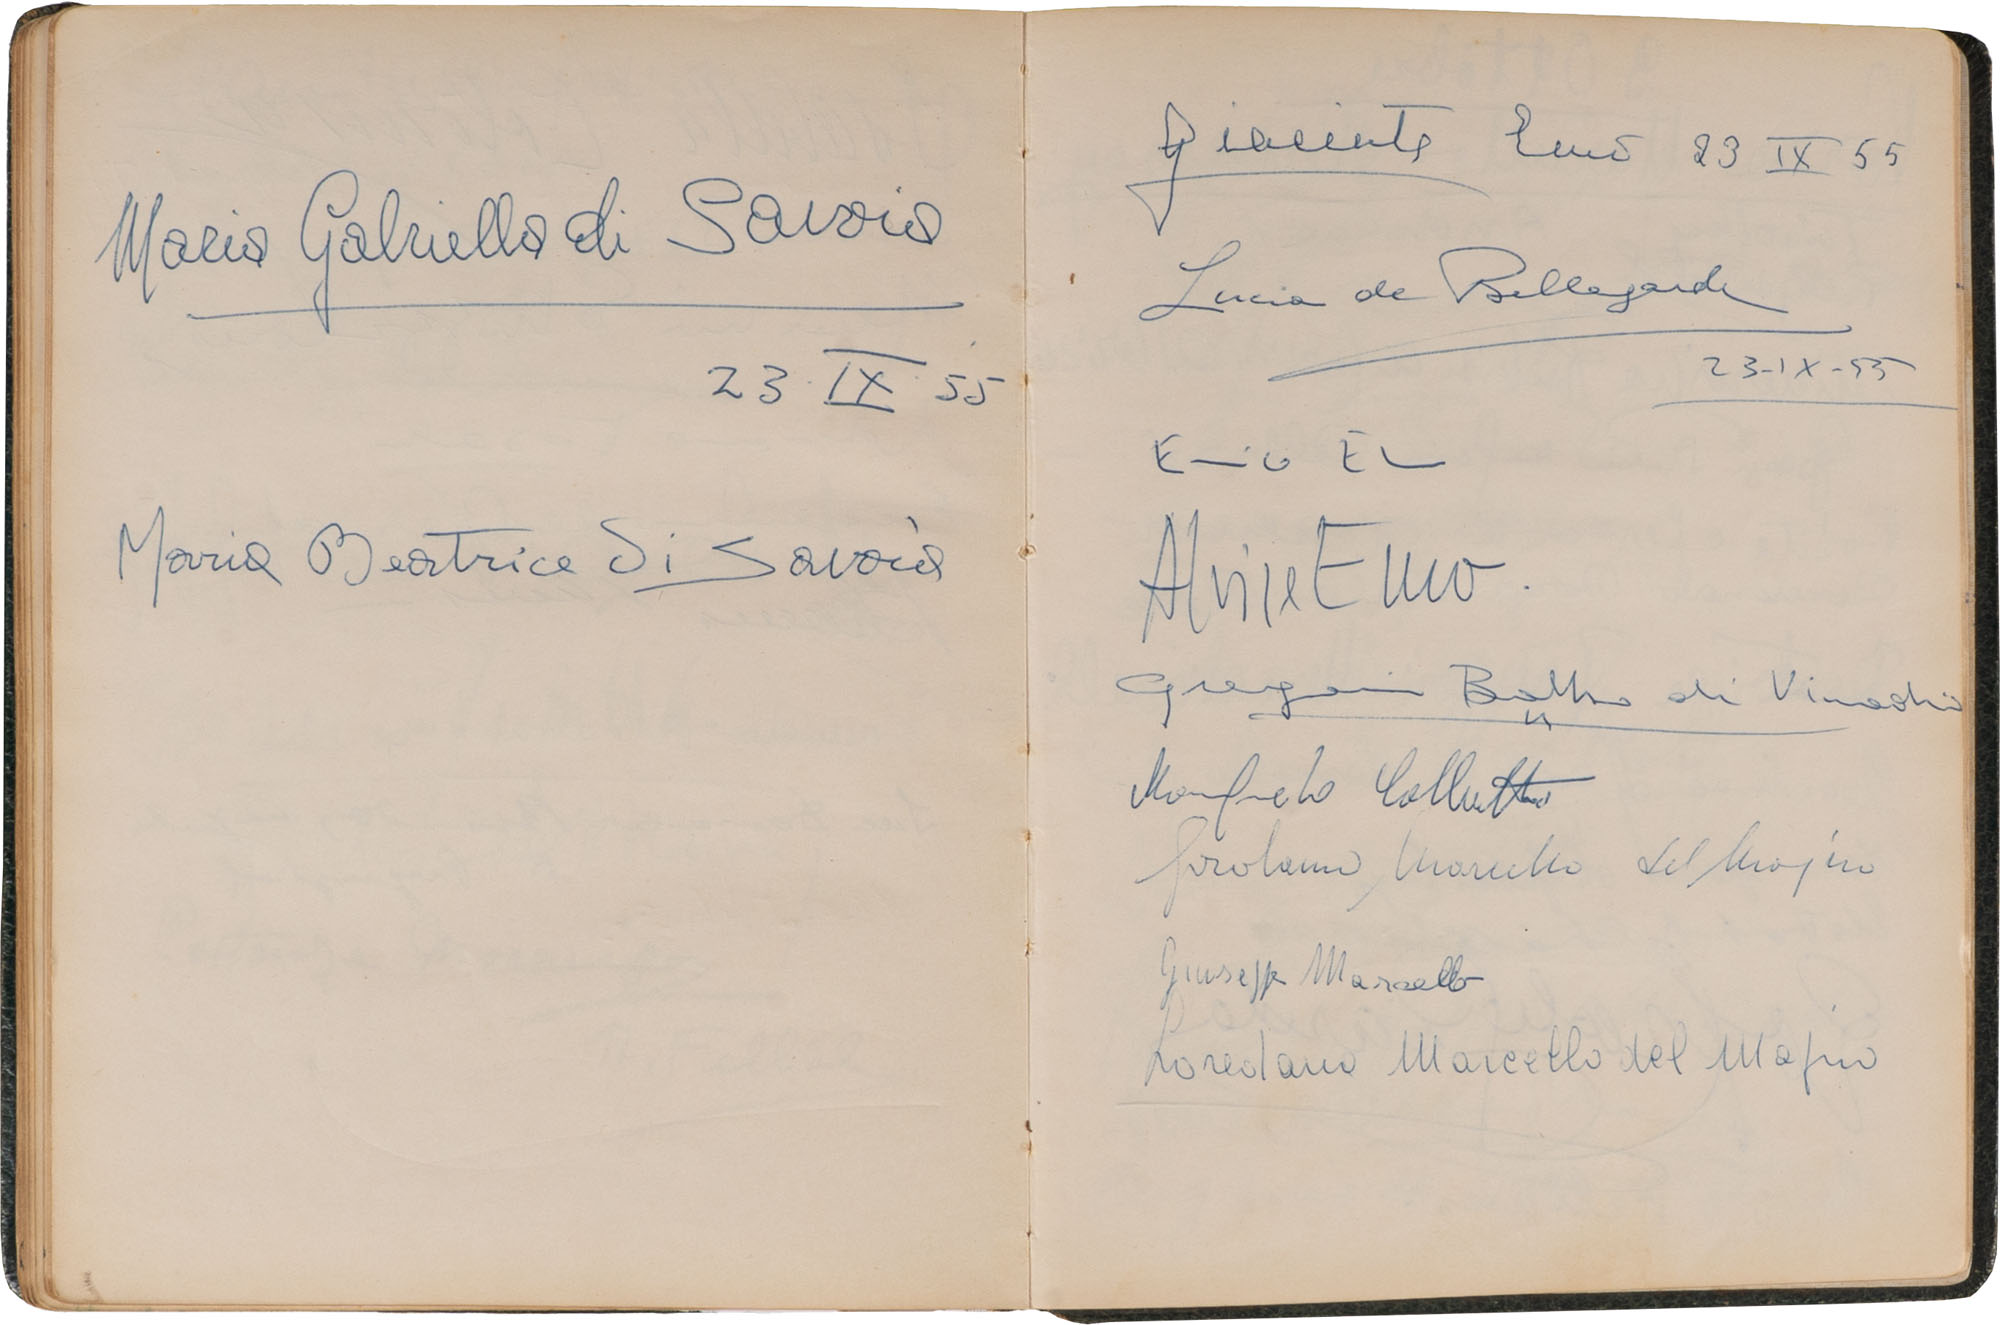 Maria Gabriella di Savoia
23 IX 55
Maria Beatrice di Savoia
Giacinta Emo 23 IX 55
Lucia de Bellegarde
23-IX-55
Alvise Emo.
di Vinadio
Manfredo Collalto
Girolamo Marcello del Majno
Giuseppe Marcello
Loredana Marcello del Majno